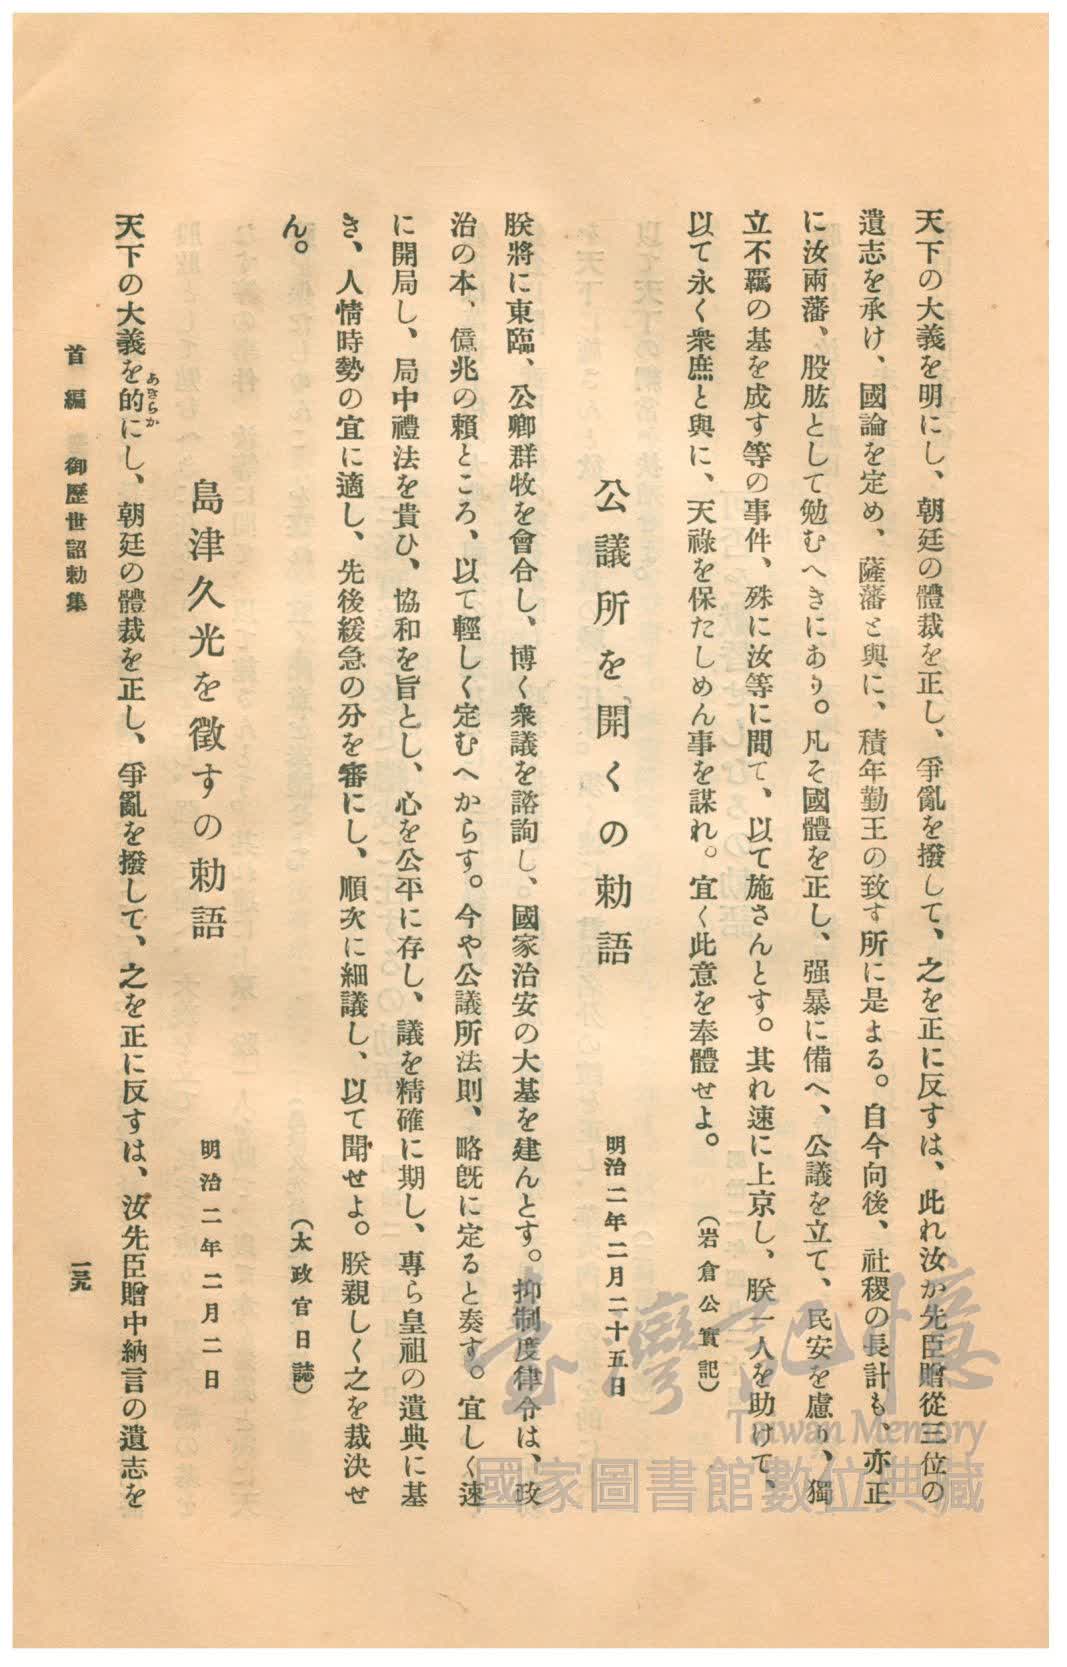 天下の大義を明にし、朝廷の體裁を正し、爭亂を撥して、之を正に反すは、此れ汝か先臣贈從三位の
遺志を承け、國論を定め、薩藩と與に、積年勤王の致す所に是よる。自今向後、社稷の長計も、亦正
に汝兩藩、股肱として勉むへきにあり。凡そ國體を正し、强暴に備へ、公議を立て、民安を慮り、獨
立不羈の基を成す等の事件、殊に汝等に問て、以て施さんとす。其れ速に上京し、朕一人を助けて、
以て永く衆庶と與に、天祿を保たしめん事を謀れ。宜く此意を奉體せよ。 (岩倉公實記)
公議所を開くの勅語 明治二年二月二十五日
朕將に東臨、公卿群牧を會合し、博く衆議を諮詢し、國家治安の大基を建んとす。抑制度律令は、政
治の本、億兆の賴ところ、以て輕しく定むへからす。今や公議所法則、略旣に定ると奏す。宜しく速
に開局し、局中禮法を貴ひ、協和を旨とし、心を公平に存し、議を精確に期し、專ら皇祖の遺典に基
き、人情時勢の宜に適し、先後緩急の分を審にし、順次に細議し、以て聞せよ。朕親しく之を裁決せ
ん。 (太政官日誌)
島津久光を徵すの勅語 明治二年二月二日
天下の大義を的にし、朝廷の體裁を正し、爭亂を撥して、之を正に反すは、汝先臣贈中納言の遺志を
あきらか
首編 御歷世詔勅集 一三九
臺灣記憶
Taiwan Memory
國家圖書館數位典藏